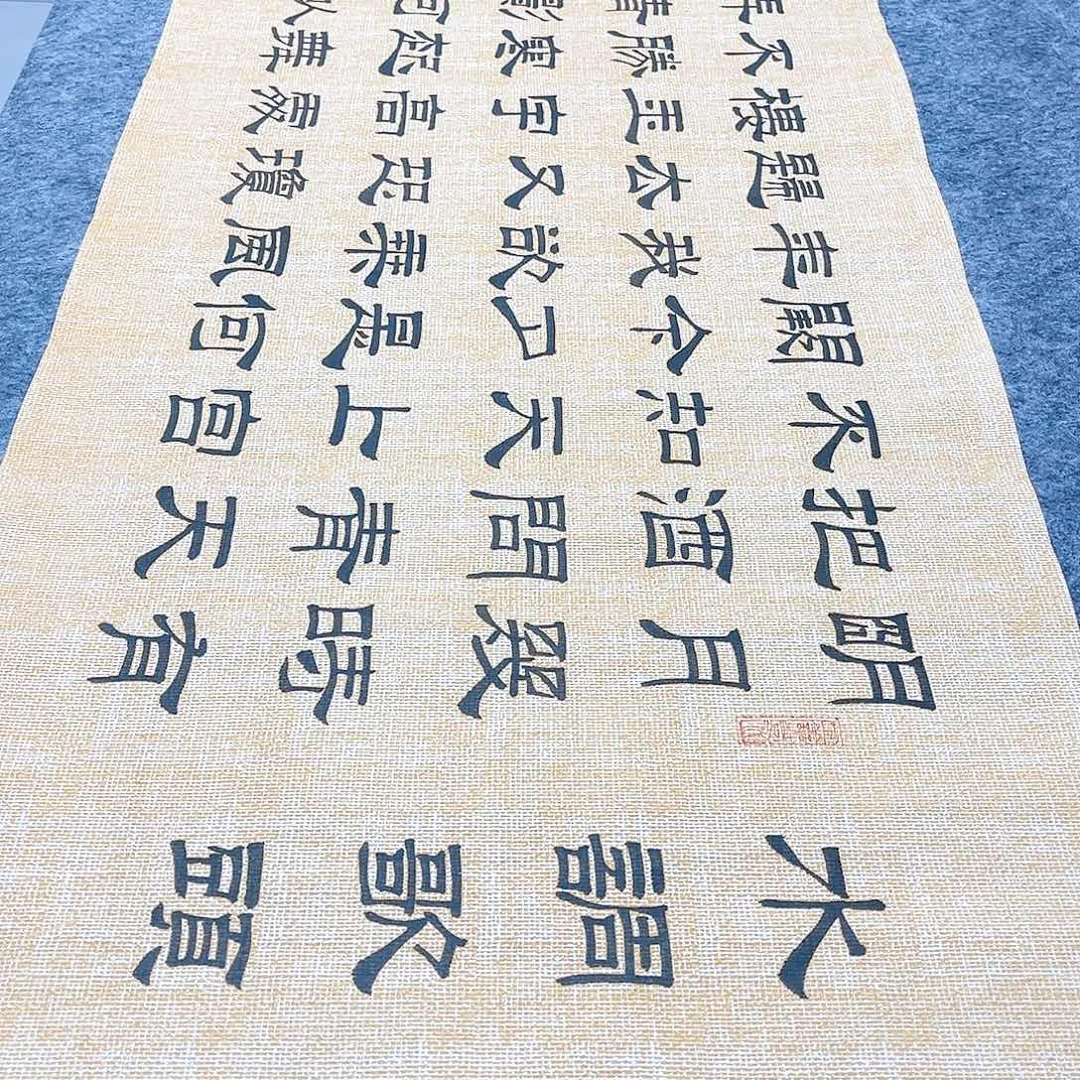 水調歌頭
明月幾時有
把酒問青天
不知天上宮
闕今夕是何
年我欲乘風
歸去又恐瓊
樓玉宇高處
不勝寒起舞
弄清影何似